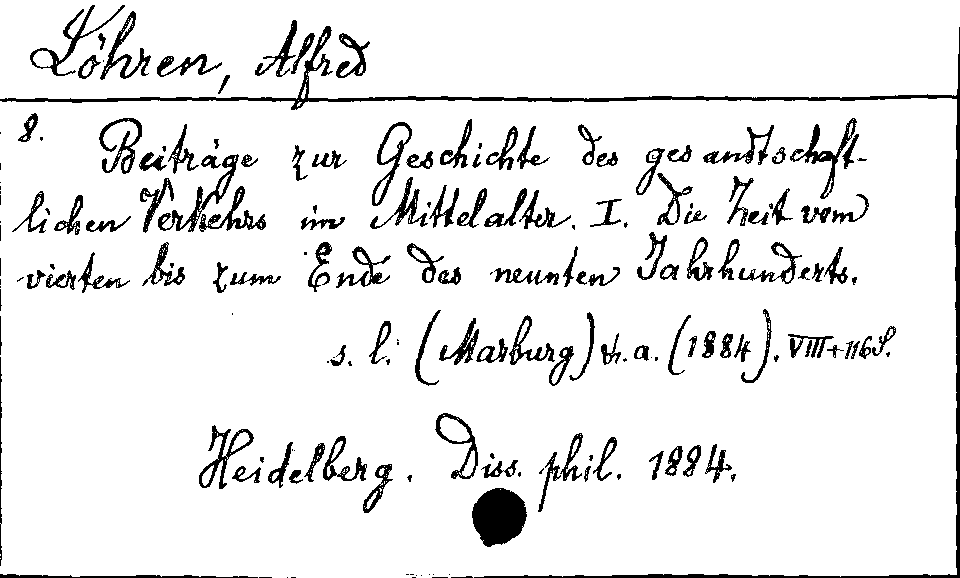 Löhren, Alfred
8. Beiträge zur Geschichte des gesandtschaft-
lichen Verkehrs im Mittelalter. I. Die Zeit vom
vierten bis zum Ende des neunten Jahrhunderts.
s. l. (Marburg) &. a. (1884). VIII+116S.
Heidelberg. Diss. phil. 1884.